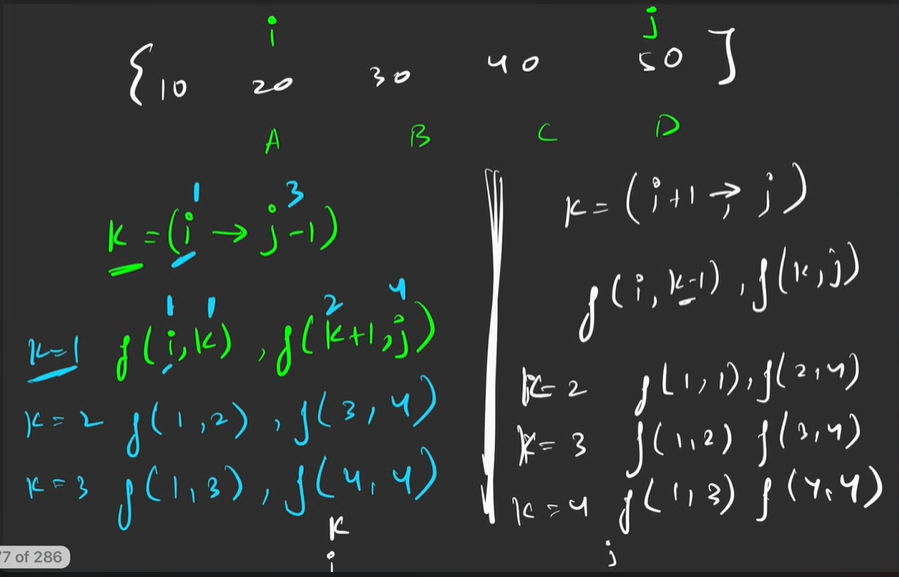 i j
{10 20 30 40 50]
A B C D
1 3
k = (i → j-1)
1 1 2 4
k=1 f(i,k), f(k+1,j)
k=2 f(1,2), f(3,4)
k=3 f(1,3), f(4,4)
k = (i+1 → j)
f(i,k-1), f(k,j)
k=2 f(1,1), f(2,4)
k=3 f(1,2) f(3,4)
k=4 f(1,3) f(4,4)
k
i j
7 of 286